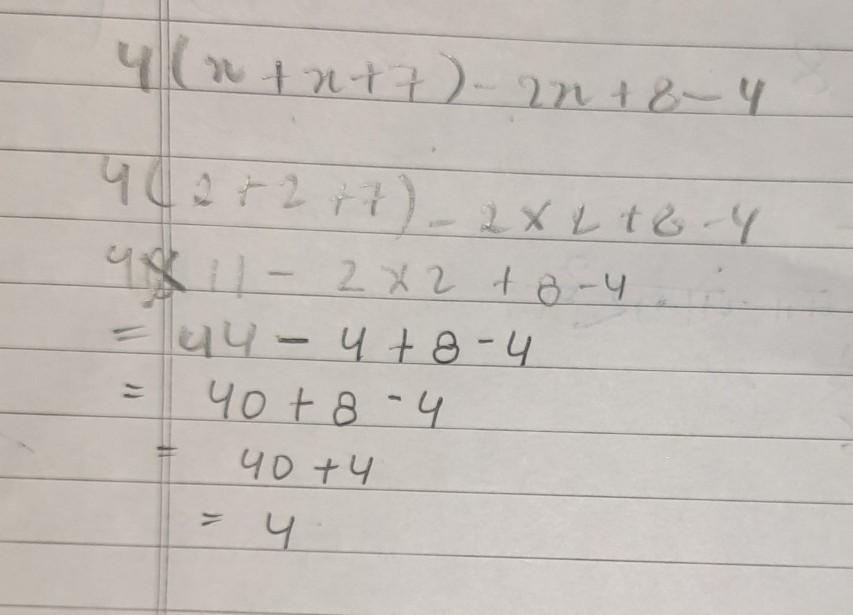 4(n+n+7)-2n+8-4
4(2+2+7)-2×2+8-4
4×11-2×2+8-4
=44-4+8-4
=40+8-4
=40+4
=4